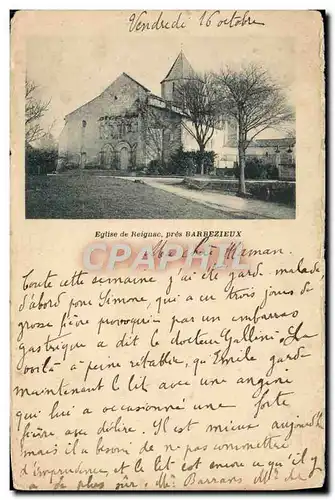 Vendredi 16 octobre
Eglise de Reignac, près BARBEZIEUX
CPARAMA
Ma chère Maman.
Toute cette semaine j'ai été garde malade
d'abord pour Simone, qui a eu trois jours de
grosse fièvre provoquée par un embarras
gastrique a dit le docteur Gallini. La
voilà à peine rétablie, qu'Emile garde
maintenant le lit avec une angine
qui lui a occasionné une forte
fièvre avec délire. Il est mieux aujourd'hui
mais il a besoin de ne pas commettre
d'imprudence, et le lit est encore ce qu'il y
a de plus sûr. Mr Barrans Mr de